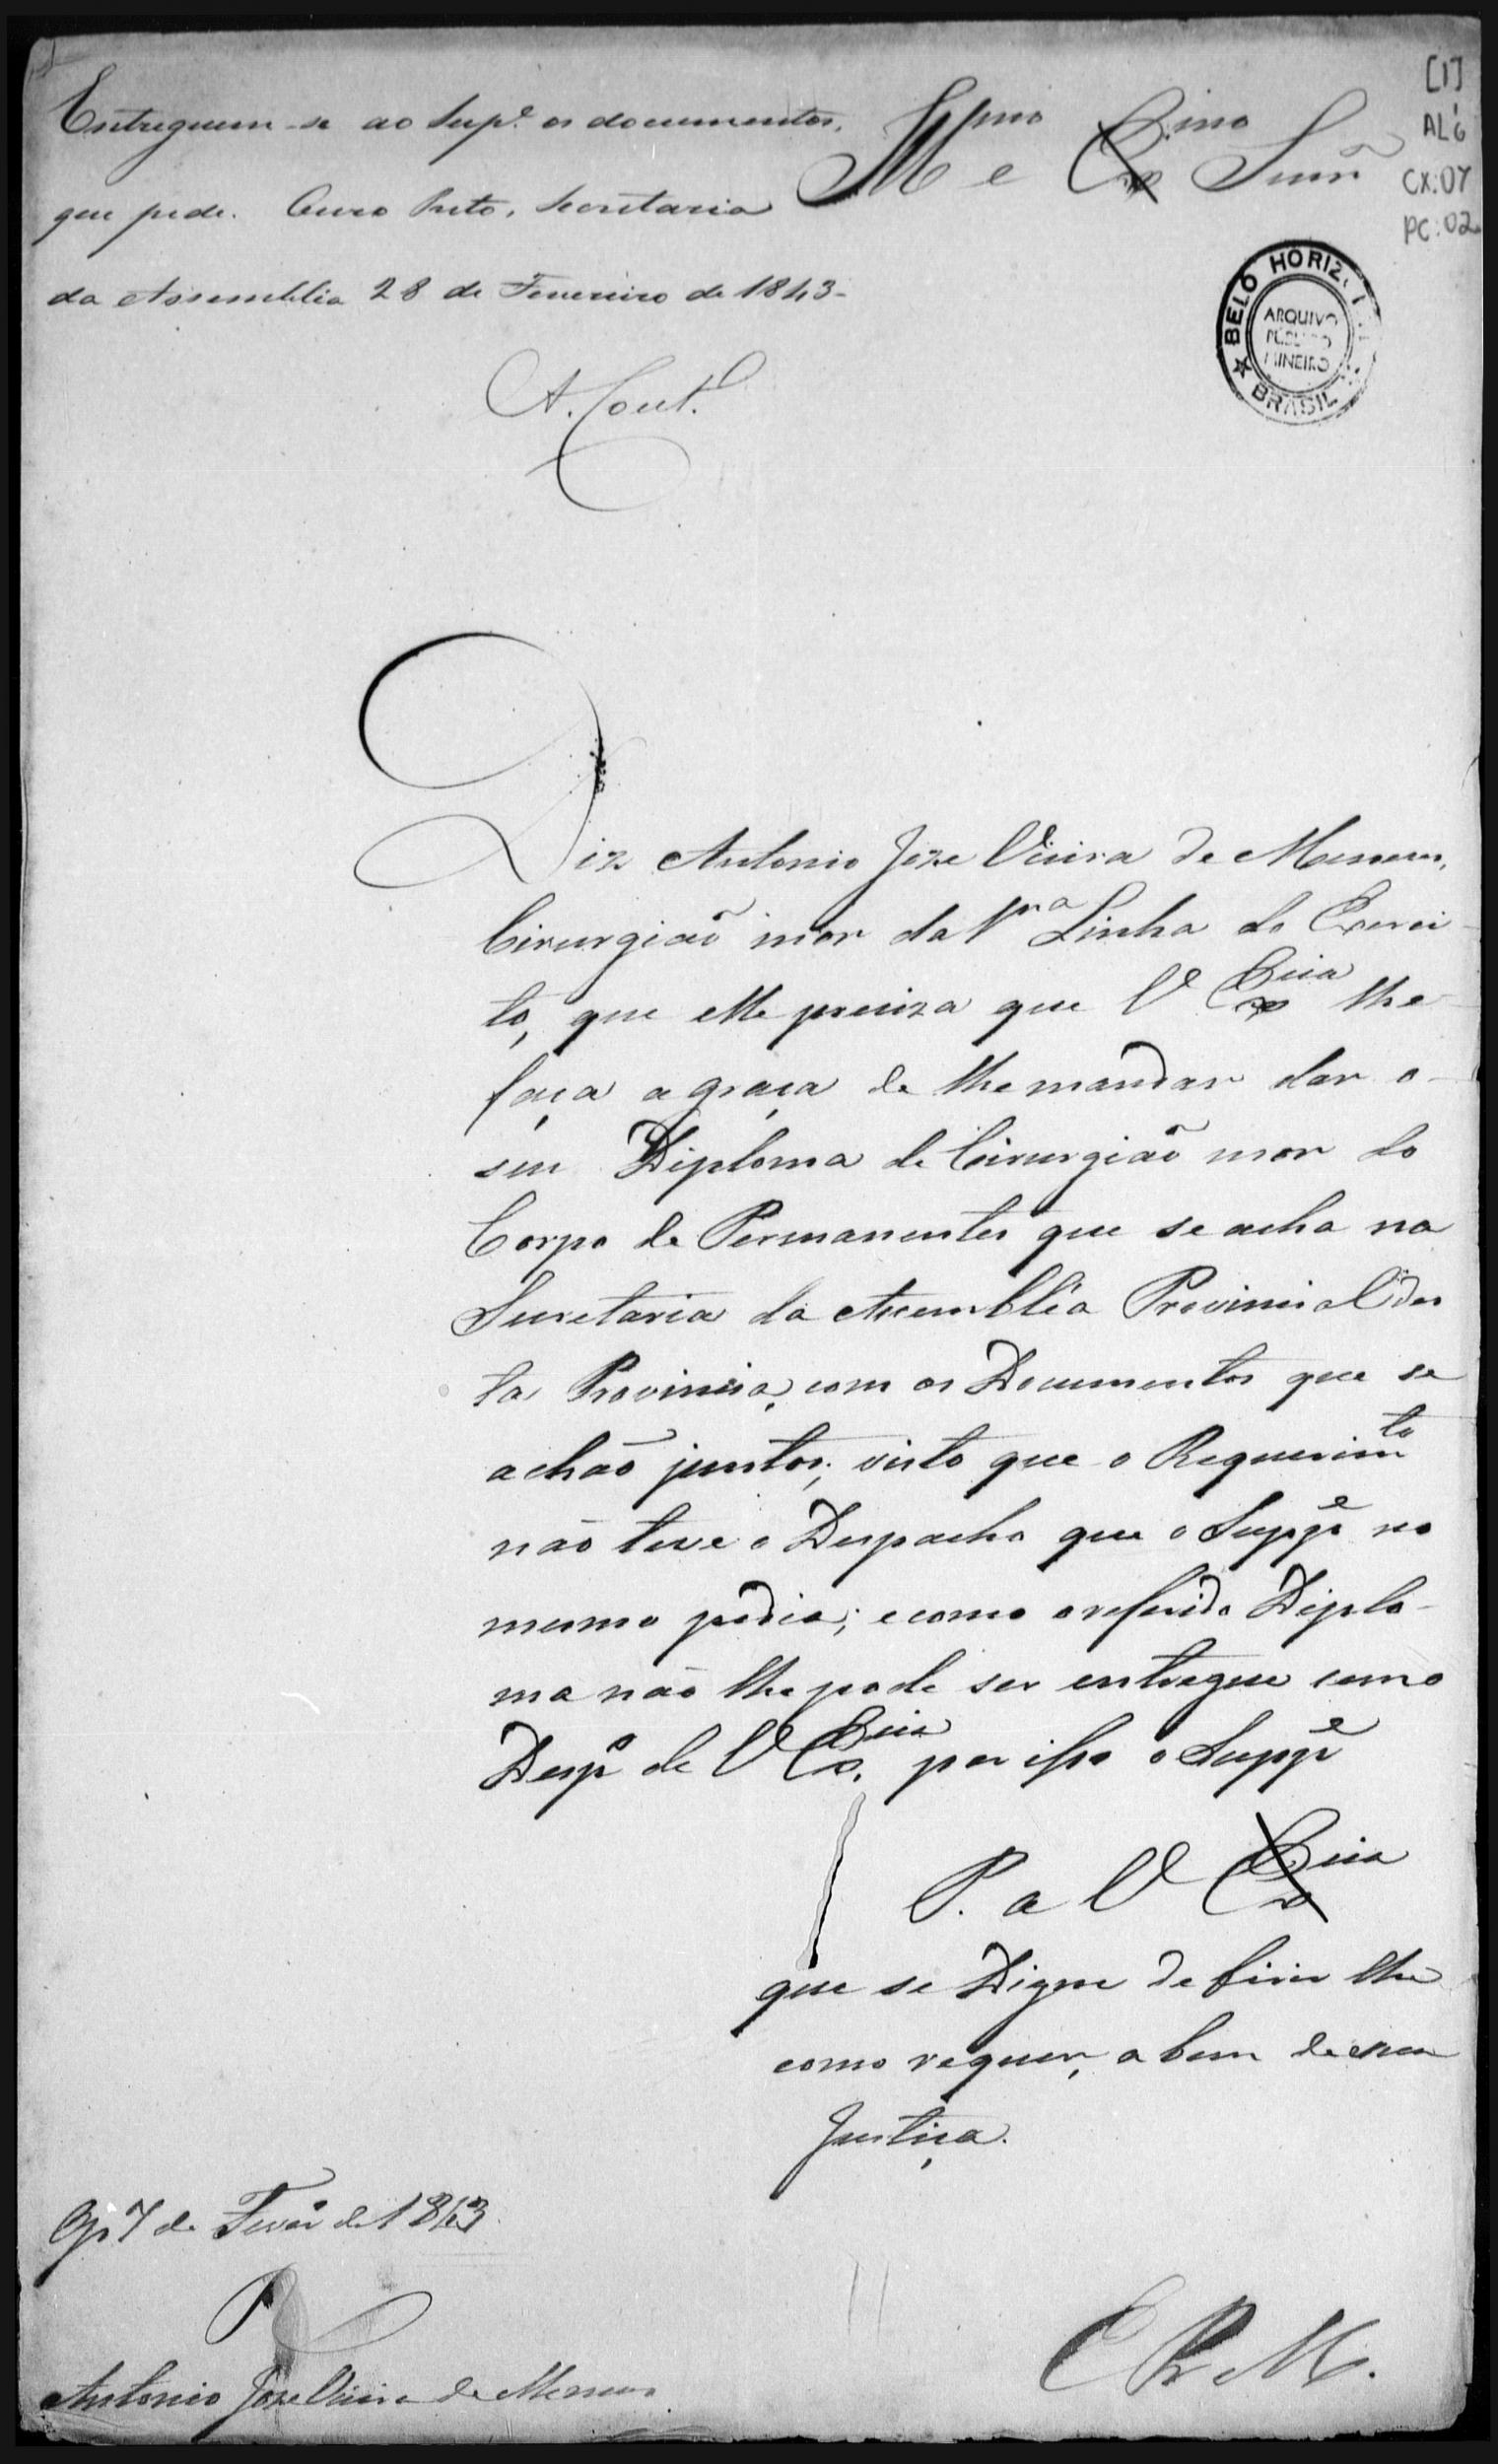 Entreguem-se ao Supe. os documentos,
que pede. Ouro Preto, Secretaria
da Assemblea 28 de Fevereiro de 1843-
A. Cout.
Illmo e Exmo Senr
[1]
AL6
CX:07
PC:02
BELO HORIZ
ARQUIVO
PÚBLICO
MINEIRO
BRASIL
Diz Antonio Joze Vieira de Menezes,
Cirurgião mor da 1ra Linha do Exerci
to, que elle preciza que V Excia lhe
faça a graça de lhe mandar dar o
seu Diploma de Cirurgião mor do
Corpo de Permanentes que se acha na
Secretaria da Assemblêa Provincial des
ta Provincia, com os Documentos que se
achão juntos; visto que o Requerimto
não teve o Despacho que o Suppe no
mesmo pedia; e como o referido Diplo-
ma não lhe pode ser entregue semo
Despo de V Excia, por isso o Suppe
P. a V Excia
que se Digne deferir lhe
como requer, a bem de sua
Justiça.
OP 7 de Fevro de 1843.
Antonio Joze Vieira de Menezes
E R M.